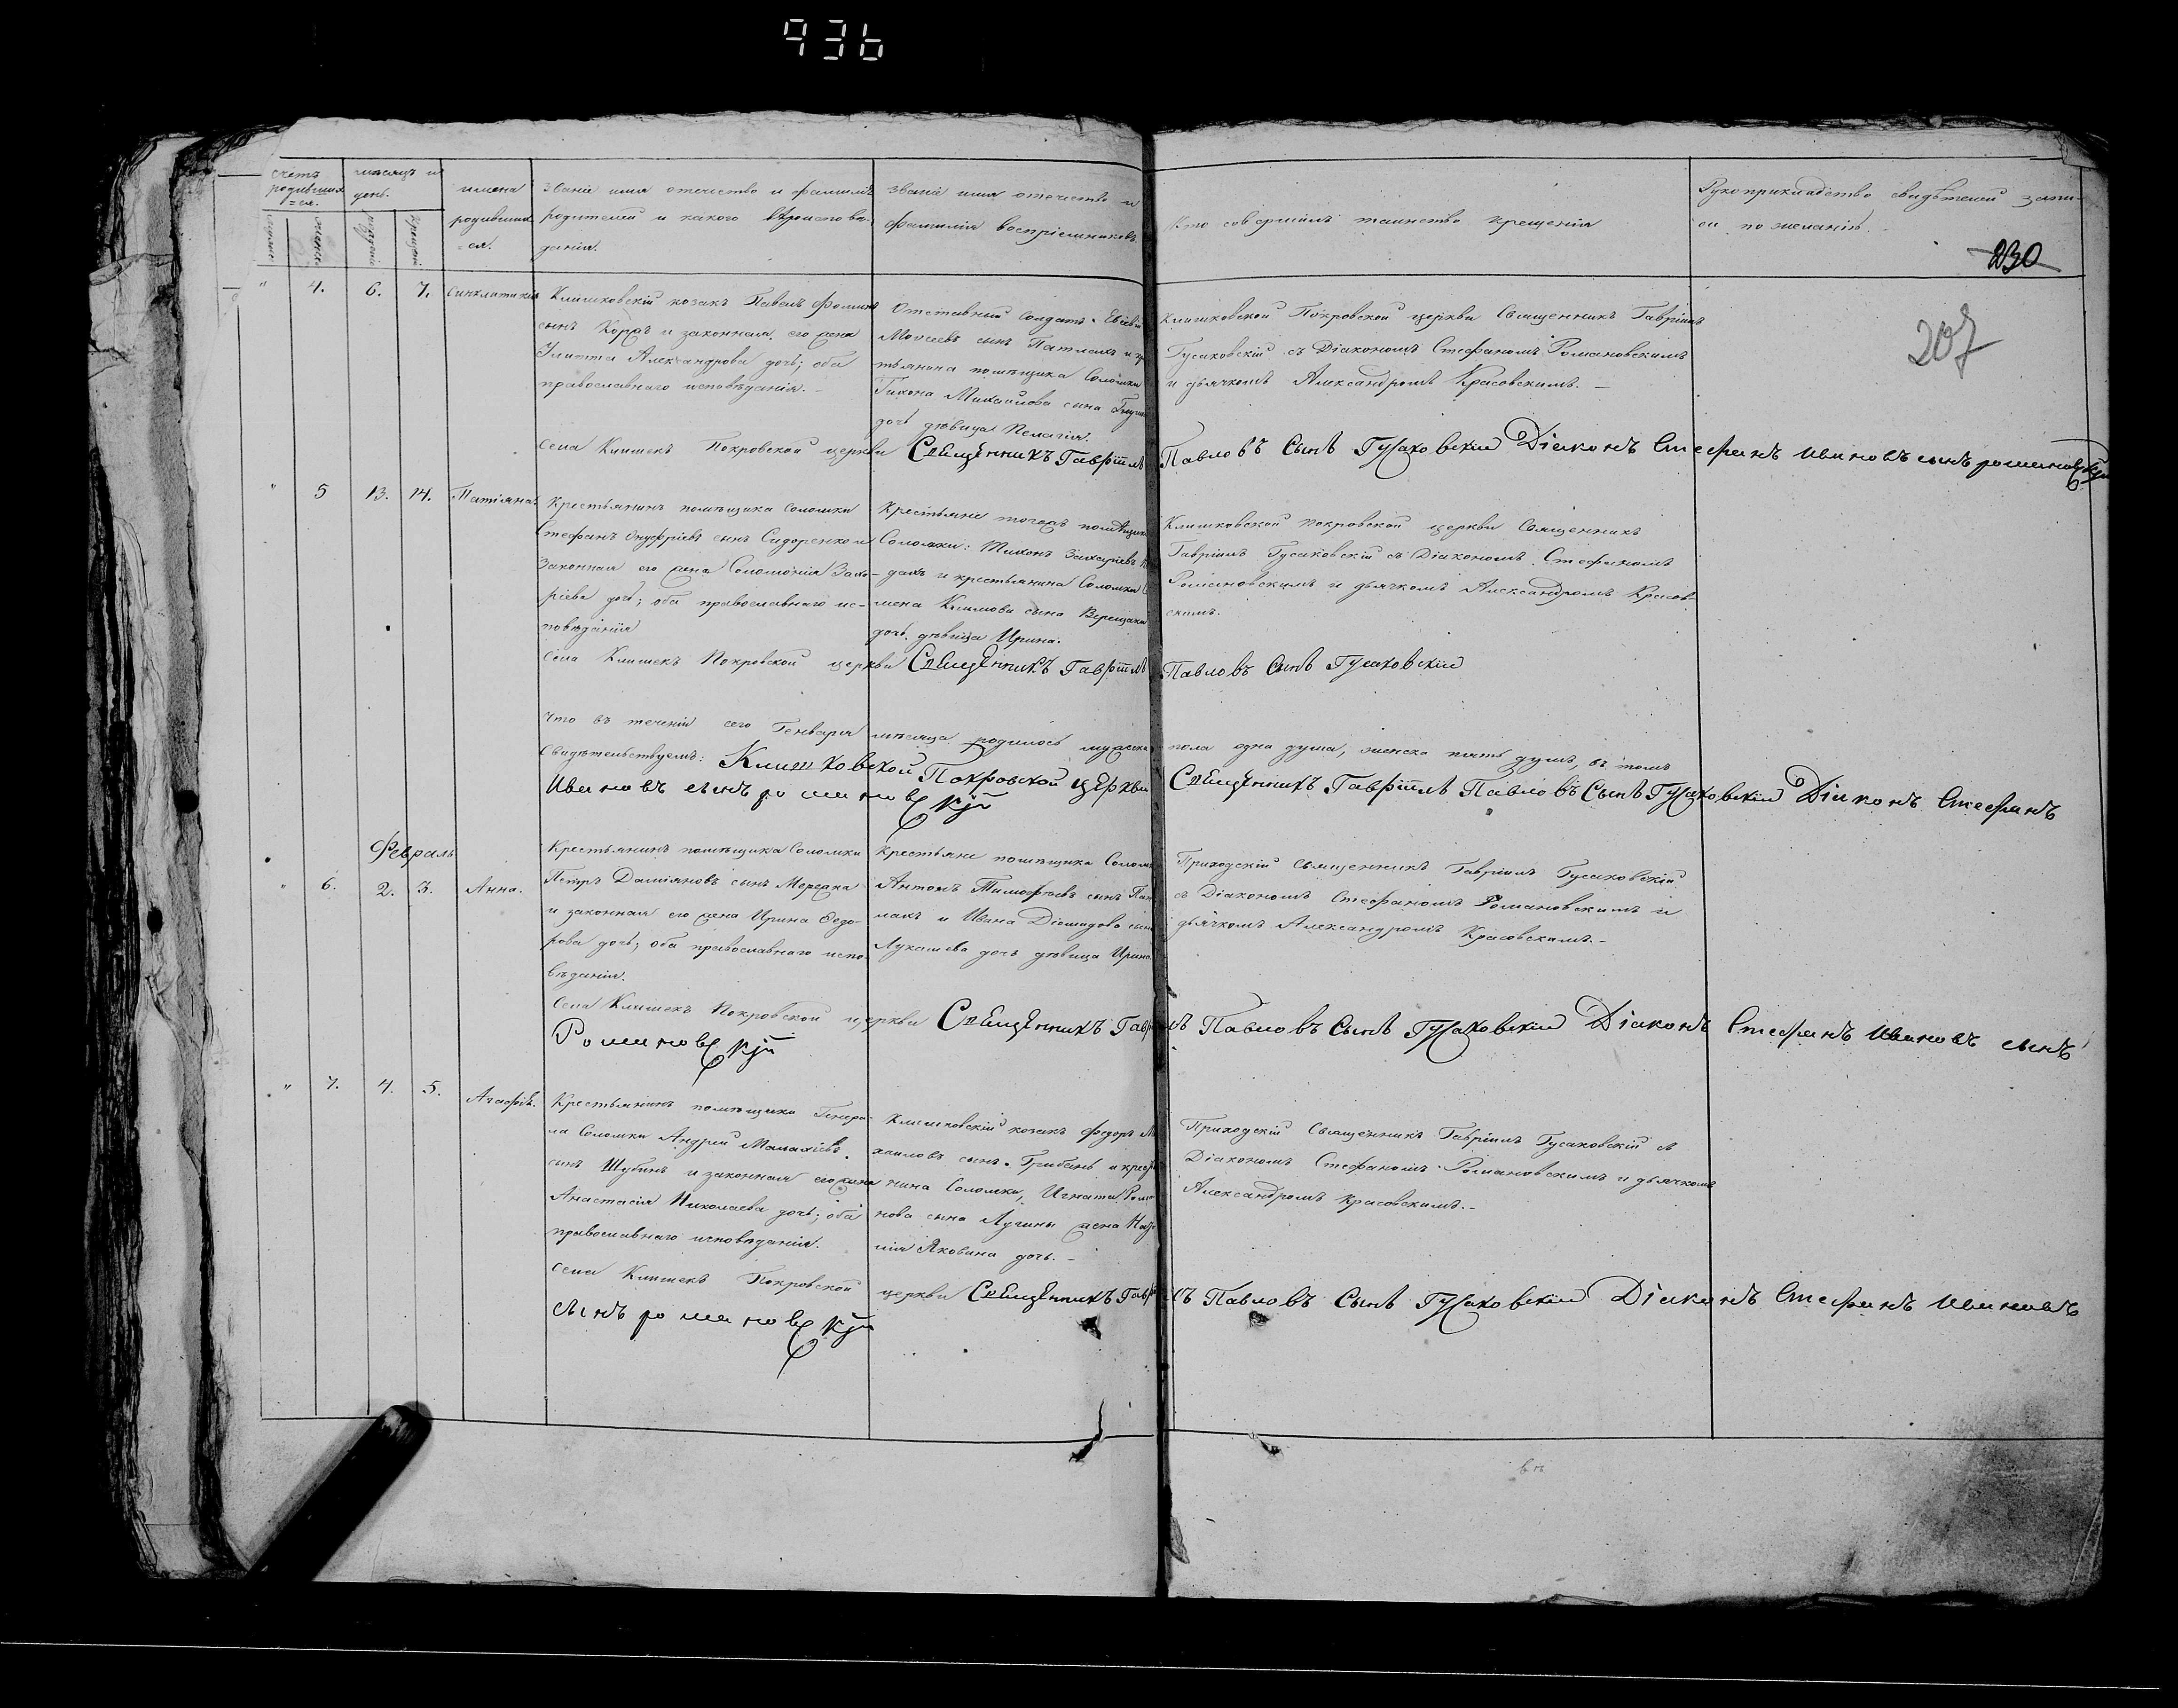 936
счетъ родившихся.
мѣсяцъ и день.
имена родившихся.
Званіе имя отечество и фамилія родителей и какого вѣроисповѣданія.
Званіе имя отечество и фамилія воспріемниковъ
Кто совершилъ таинство крещенія
Рукоприкладство свидѣтелей записи по желанію.
230
207
" 4. 6. 7. Синклитикія
Клишковскій козакъ Павелъ Фоминъ
сынъ Коржъ и законная его жена
Улитта Александрова дочь; оба
православнаго исповѣданія.
Отставный солдатъ Евсевій
Моисеевъ сынъ
тьянина помѣщика Соломки
Тихона Михайлова сына
дочь дѣвица Пелагія.
Клишковской Покровской церкви Священникъ Гавріилъ
Гусаковскій съ Діакономъ Стефаномъ Романовскимъ
и дьячкомъ Александромъ Красовскимъ.
Села Клишекъ Покровской церкви Священникъ Гавріилъ Павловъ Сынъ Гусаковскій Діаконъ Стефанъ Ивановъ сынъ романовскій
" 5 13. 14. Татіяна.
Крестьянинъ помѣщика Соломки
Стефанъ Онуфріевъ сынъ Сидоренком
Законная его жена Соломонія Заха-
ріева дочь; оба православнаго ис-
повѣданія
Крестьяне тогожъ помѣщика
Соломки: Тихонъ Захаріевъ
дахъ и крестьянина Соломки
мена Климова сына Верещаки
дочь дѣвица Ирина.
Клишковской Покровской церкви Священникъ
Гавріилъ Гусаковскій съ Діакономъ Стефаномъ
Романовскимъ и дьячкомъ Александромъ Красов-
скимъ.
Села Клишекъ Покровской церкви Священникъ Гавріилъ Павловъ Сынъ Гусаковскій
Что въ теченіи сего Генваря мѣсяца родилось мужска пола одна душа, женска пять душъ, въ томъ
Свидѣтельствуемъ: Клишковской Покровской церкви Священникъ Гавріилъ Павловъ Сынъ Гусаковскій Діаконъ Стефанъ
Ивановъ сынъ романовскій
Февраль
" 6. 2. 3. Анна.
Крестьянинъ помѣщика Соломки
Петръ Даміяновъ сынъ Мережка
и законная его жена Ирина Ѳедо-
рова дочь; оба православнаго испо-
вѣданія.
Крестьяне помѣщика Солом
Антонъ Тимофѣевъ сынъ
макъ и Ивана Діомидова сын
Лукашева дочь дѣвица Ирина.
Приходскій Священникъ Гавріилъ Гусаковскій
съ Діакономъ Стефаномъ Романовскимъ и
дьячкомъ Александромъ Красовскимъ.
Села Клишекъ Покровской церкви Священникъ Гавріилъ Павловъ Сынъ Гусаковскій Діаконъ Стефанъ Ивановъ сынъ
Романовскій
" 7. 4. 5. Агафія.
Крестьянинъ помѣщика Генера-
ла Соломки Андрей Малахіевъ
сынъ Шубинъ и законная его жена
Анастасія Николаева дочь; оба
православнаго исповѣданія.
Клишковскій козакъ Федоръ
хаиловъ сынъ Грибань и крест
нина Соломки, Игната Рома
нова сына Лузины жена
лія Яковина дочь.
Приходскій Священникъ Гавріилъ Гусаковскій съ
Діакономъ Стефаномъ Романовскимъ и дьячкомъ
Александромъ Красовскимъ.
Села Клишекъ Покровской церкви Священникъ Гавріилъ Павловъ Сынъ Гусаковскій Діаконъ Стефанъ Ивановъ
сынъ романовскій